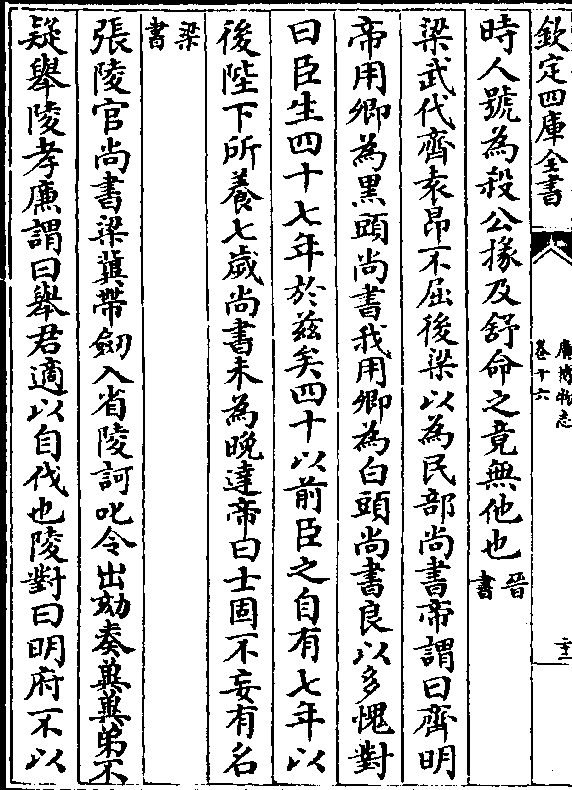 欽定四庫全書
廣博物志
卷十六
時人號為殺公掾及舒命之竟無他也晉書
梁武代齊袁昂不屈後梁以為民部尚書帝謂曰齊明
帝用卿為黒頭尚書我用卿為白頭尚書良以多愧對
曰臣生四十七年於兹矣四十以前臣之自有七年以
後陛下所養七歲尚書未為晩達帝曰士固不妄有名
梁書
張陵官尚書梁冀帶劒入省陵訶叱令出劾奏冀冀弟不
疑舉陵孝廉謂曰舉君適以自伐也陵對曰明府不以